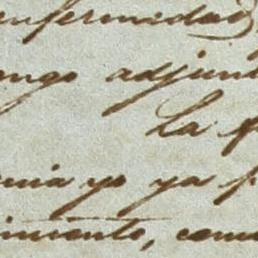 enfermedad,
engo adjunt
La p
enia yo ya p
imiento, com